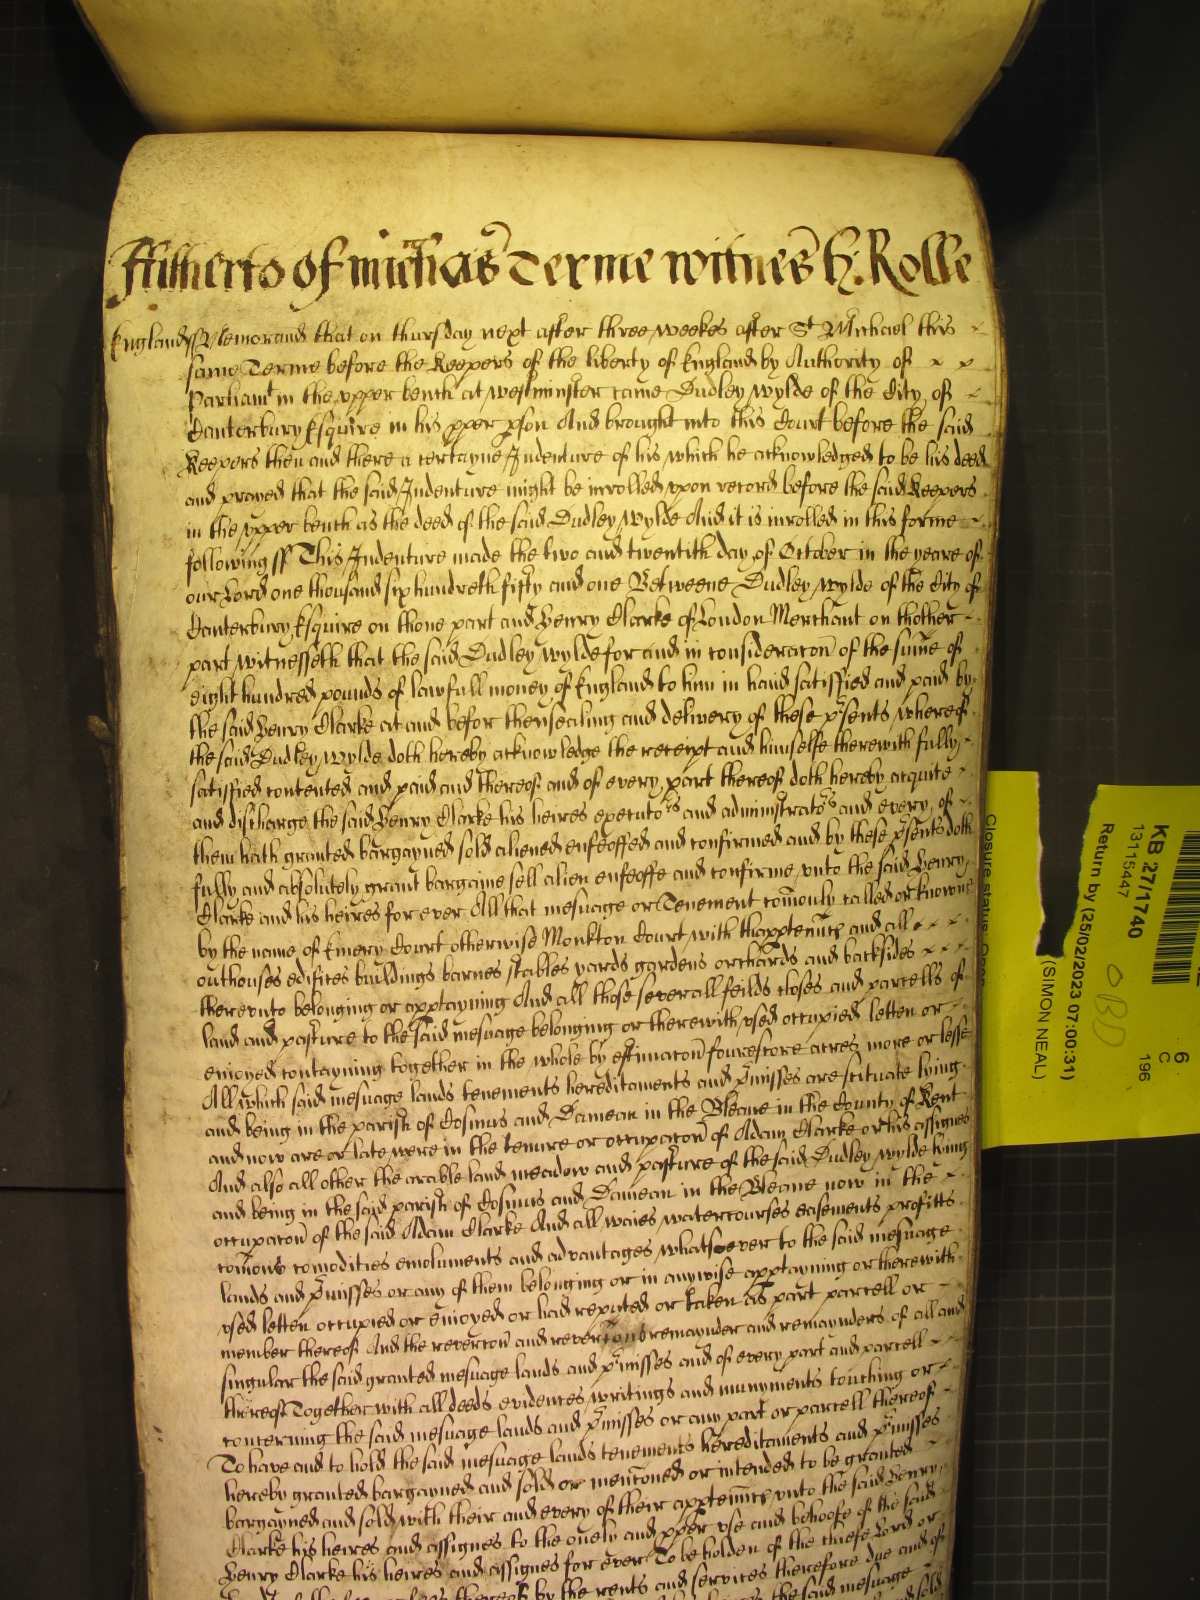 of Michas Terme witnes H: Rolle
England ss Memorand that on thursday next after three weekes after St Michael this
same Terme before the Keepers of the liberty of England by Authority of
Parliamt in the vpper bench at westminster came Dudley wylde of the City of
Canterbury Esquire in his pper pson And brought into this Court before the said
Keepers then and there a certayne Indenture of his which he acknowledged to be his deed
and prayed that the said Indenture might be inrolled vpon record before the said Keepers
in the vpper bench as the deed of the said Dudley wylde And it is inrolled in this forme
following ss This Indenture made the two and twentith day of October in the yeare of
our Lord one thousand six hundreth fifty and one Betweene Dudley wylde of the City of
Canterbury Esquire on thone part and Henry Clarke of London Merchant on thother
part witnesseth that the said Dudley wylde for and in consideracon of the sume of
eight hundred pounds of lawfull money of England to him in hand satisfied and paid by
the said Henry Clarke at and befor thensealing and delivery of these psents whereof
the said Dudley wylde doth hereby acknowledge the receipt and himselfe therewith fully
satisfied contented and paid and thereof and of every part thereof doth hereby acquite
and discharge the said Henry Clarke his heires executors and administrators and every of
them hath granted bargayned sold aliened enfeoffed and confirmed and by these psents doth
fully and absolutely grant bargaine sell alien enfeoffe and confirme vnto the said Henry
Clarke and his heires for ever All that mesuage or Tenement comonly called or knowne
by the name of Emery Court otherwise Monkton Court with thapptenncs and all
outhouses edifices buildings barnes stables yards gardens orchards and backsides
therevnto belonging or apptayning And all those severall feilds closes and parcells of
land and pasture to the said mesuage belonging or therewith vsed occupied letten or
enioyed contayning together in the whole by estimacon fourescore acres more or lesse
All which said mesuage lands tenements hereditaments and pmisses are scituate lying
and being in the parish of Cosmus and Damean in the Bleane in the County of Kent
and now are or late were in the tenure or occupacon of Adam Clarke or his assignes
And also all other the arable land meadow and pasture of the said Dudley wylde lying
and being in the said parish of Cosmus and Damean in the Bleane now in the
occupacon of the said Adam Clarke And all waies watercourses easements profitts
comons comodities emoluments and advantages whatsoever to the said mesuage
lands and pmisses or any of them belonging or in anywise apptayning or therewith
vsed letten occupied or enioyed or had reputed or taken as part parcell or
member thereof And the revercon and revercons remaynder and remaynders of all and
singular the said granted mesuage lands and pmisses and of every part and parcell
thereof Together with all deeds evidences writings and munyments touching or
concerning the said mesuage lands and pmisses or any part or parcell thereof
To have and to hold the said mesuage lands tenements hereditaments and pmisses
hereby granted bargayned and sold or menconed or intended to be granted
bargayned and sold with their and every of their apptenncs vnto the said Henry
Clarke his heires and assignes to the onely and pper vse and behoofe of the said
Henry Clarke his heires and assignes for ever To be holden of the chiefe Lord or
thereof by the rents and services therefore due and of
the said mesuage
KB 27/1740
13115447
Return by (25/02/2023 07:00:31)
(SIMON NEAL)
Closure status: Open
6
C
196